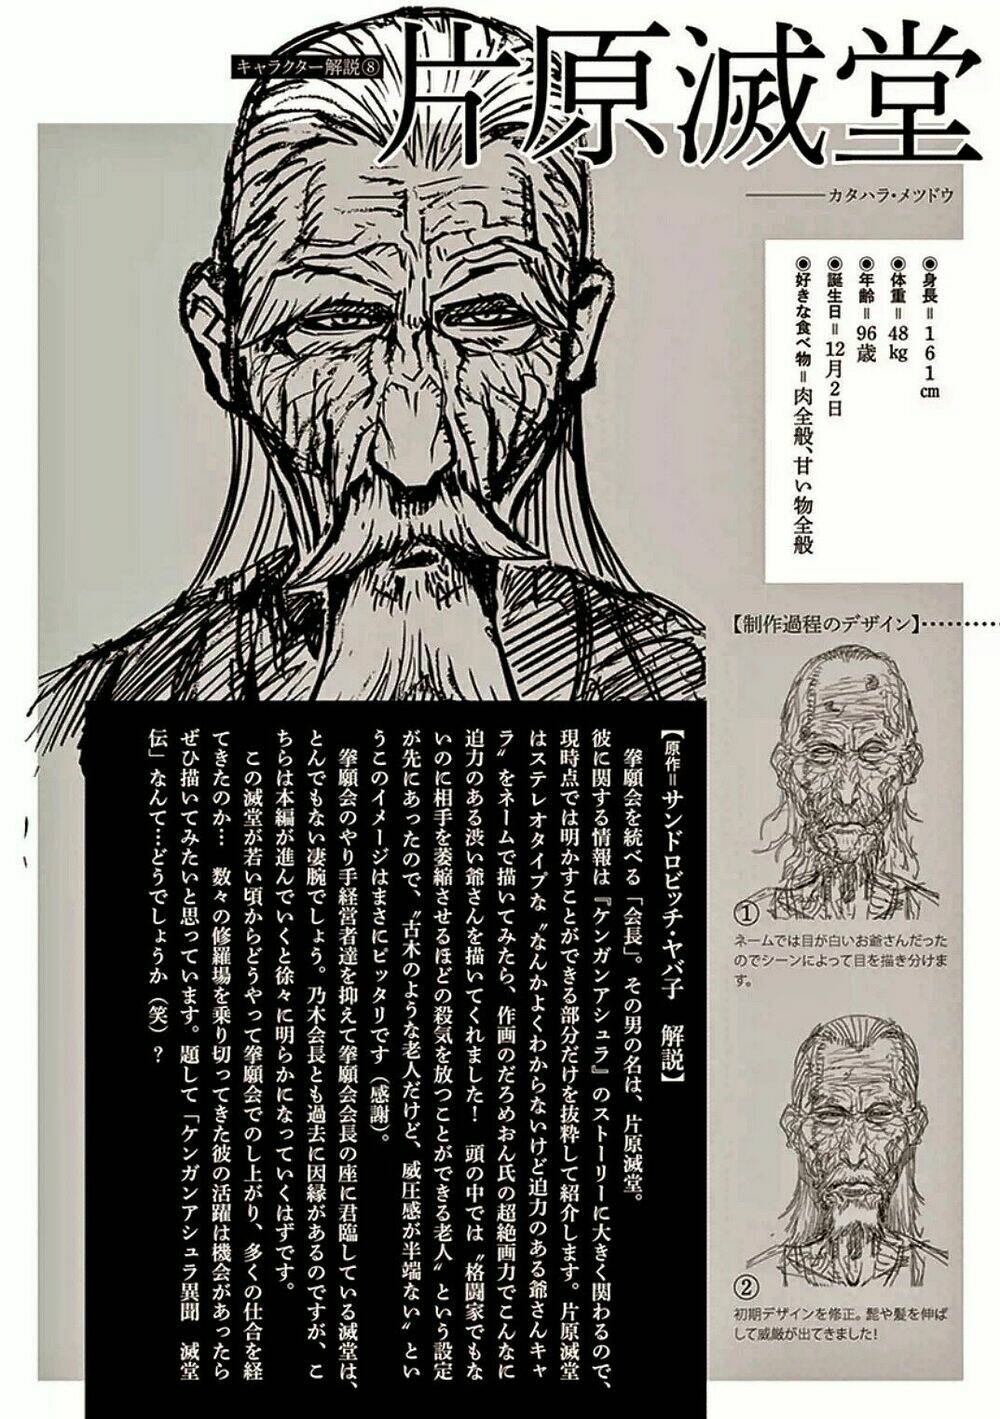 キャラクター解説⑧
片原滅堂
カタハラ・メツドウ
◉身長＝161㎝
◉体重＝48㎏
◉年齢＝96歳
◉誕生日＝12月2日
◉好きな食べ物＝肉全般、甘い物全般
【制作過程のデザイン】
①
ネームでは目が白いお爺さんだった
のでシーンによって目を描き分けま
す。
②
初期デザインを修正。髭や髪を伸ば
して威厳が出てきました!
【原作＝サンドロビッチ・ヤバ子　解説】
　拳願会を統べる「会長」。その男の名は、片原滅堂。
彼に関する情報は『ケンガンアシュラ』のストーリーに大きく関わるので、
現時点では明かすことができる部分だけを抜粋して紹介します。片原滅堂
はステレオタイプな〝なんかよくわからないけど迫力のある爺さんキャ
ラ〟をネームで描いてみたら、作画のだろめおん氏の超絶画力でこんなに
迫力のある渋い爺さんを描いてくれました!　頭の中では〝格闘家でもな
いのに相手を萎縮させるほどの殺気を放つことができる老人〟という設定
が先にあったので、〝古木のような老人だけど、威圧感が半端ない〟とい
うこのイメージはまさにピッタリです（感謝）。
　拳願会のやり手経営者達を抑えて拳願会会長の座に君臨している滅堂は、
とんでもない凄腕でしょう。乃木会長とも過去に因縁があるのですが、こ
ちらは本編が進んでいくと徐々に明らかになっていくはずです。
　この滅堂が若い頃からどうやって拳願会でのし上がり、多くの仕合を経
てきたのか…　数々の修羅場を乗り切ってきた彼の活躍は機会があったら
ぜひ描いてみたいと思っています。題して「ケンガンアシュラ異聞　滅堂
伝」なんて…どうでしょうか（笑）?